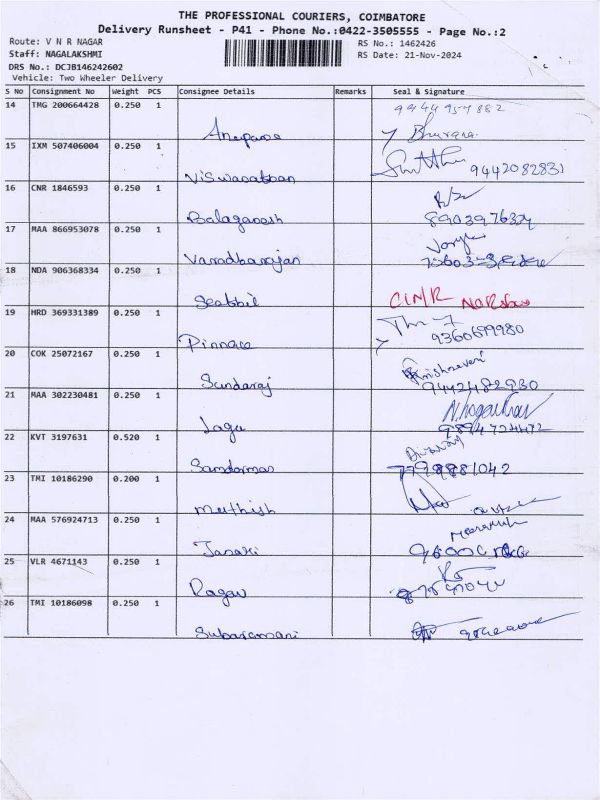 THE PROFESSIONAL COURIERS, COIMBATORE
Delivery Runsheet - P41 - Phone No.:0422-3505555 - Page No.:2
Route: V N R NAGAR RS No.: 1462426
Staff: NAGALAKSHMI RS Date: 21-Nov-2024
DRS No.: DCJB146242602
Vehicle: Two Wheeler Delivery
S No Consignment No Weight PCS Consignee Details Remarks Seal & Signature
14 TMG 200664428 0.250 1 9944957882
15 IXM 507406004 0.250 1
Viswanathan 9442082831
16 CNR 1846593 0.250 1
Balaganesh
17 MAA 866953078 0.250 1
Varadharajan
18 NDA 906368334 0.250 1
CIMR
19 HRD 369331389 0.250 1
Pinnacle 9360699980
20 COK 25072167 0.250 1
Sundaraj 9442482930
21 MAA 302230481 0.250 1
Jagu
22 KVT 3197631 0.520 1
7798881042
23 TMI 10186290 0.200 1
24 MAA 576924713 0.250 1
Janaki
25 VLR 4671143 0.250 1
Ragav
26 TMI 10186098 0.250 1
Subaramani